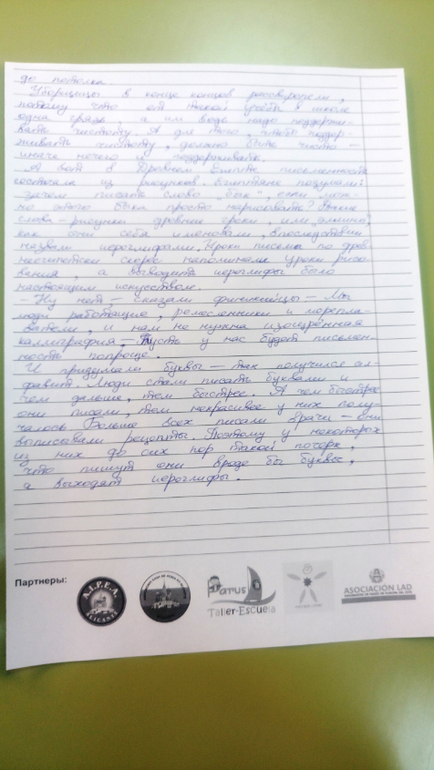 до потолка.
Уборщицы в конце концов рассвирепели,
потому что от такой учёбы в школе
одна грязь, а им ведь надо поддержи-
вать чистоту. А для того, чтобы поддер-
живать чистоту, должно быть чисто —
иначе нечего и поддерживать.
А вот в Древнем Египте письменность
состояла из рисунков. Египтяне подумали:
зачем писать слово „бык", если мож-
но этого быка просто нарисовать? Такие
слова - рисунки древние греки, или эллины,
как они себя именовали, впоследствии
назвали иероглифами. Уроки письма по древ-
неегипетски скорее напоминали уроки рисо-
вания, а выводить иероглифы было
настоящим искусством.
- Ну нет - сказали финикийцы - Мы
люди работящие, ремесленники и морепла-
ватели, и нам не нужна изощрённая
каллиграфия. Пусть у нас будет письмен-
ность попроще.
И придумали буквы - так получился ал-
фавит. Люди стали писать буквами и
чем дальше, тем быстрее. А чем быстрее
они писали, тем некрасивее у них полу-
чалось. Больше всех писали врачи - они
выписывали рецепты. Поэтому у некоторых
из них до сих пор такой почерк,
что пишут они вроде бы буквы,
а выходят иероглифы.
Партнеры:
A.I.P.E.A.
ALICANTE
Parus
Taller-Escuela
ASOCIACIÓN LAD